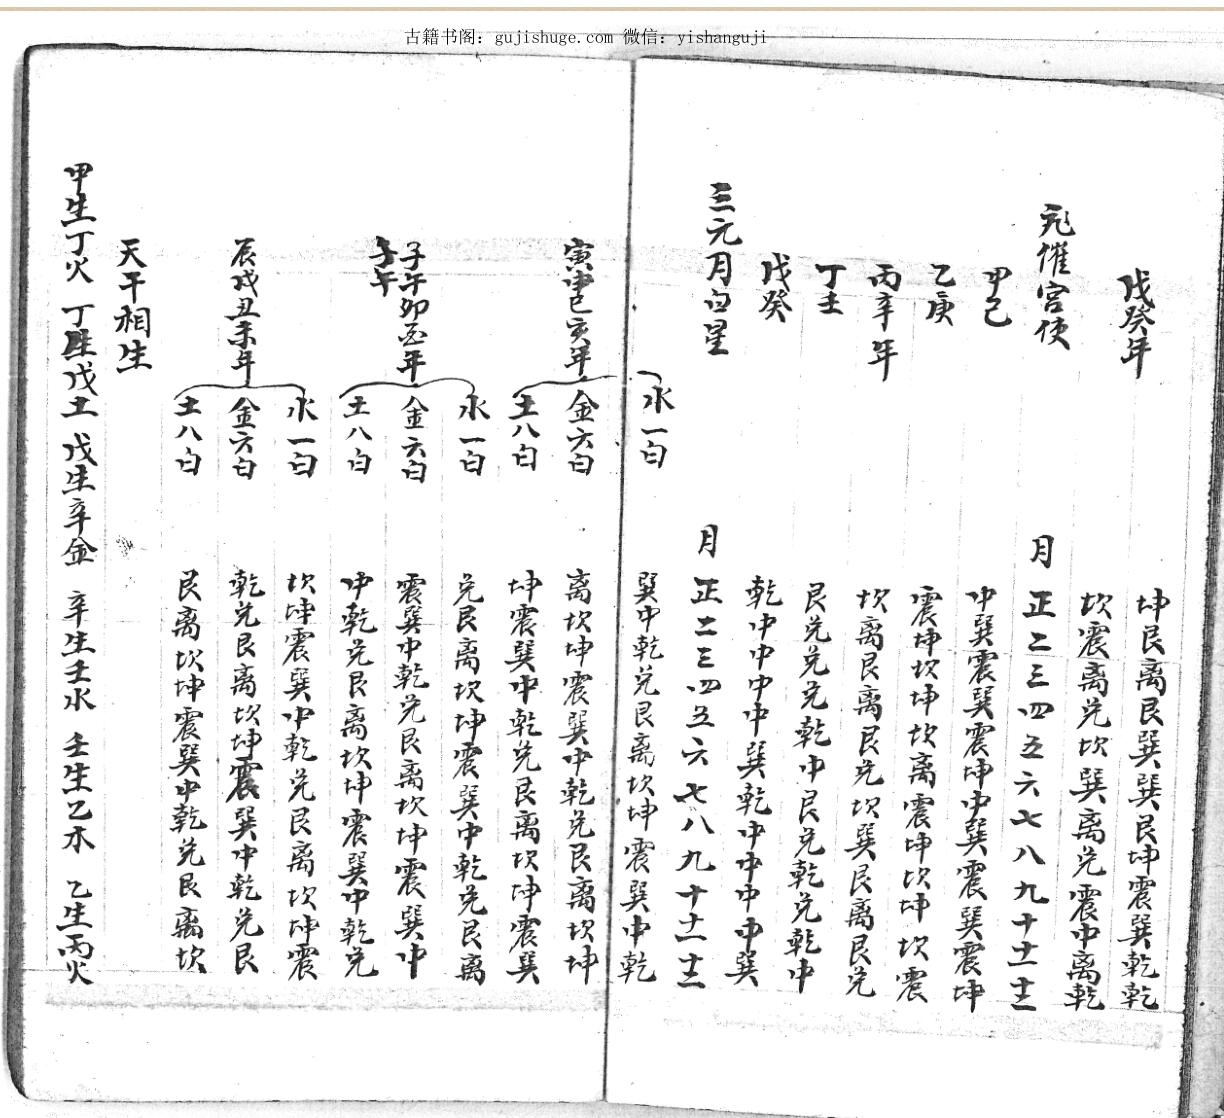 古籍书阁：gujishuge.com 微信：yishanguji
戊癸年 坤艮离艮巽巽艮坤震巽乾乾
坎震离兑坎巽离兑震中离乾
催宫使 月 正二三四五六七八九十十一十二
甲己 中巽震巽震坤中巽震巽震坤
乙庚 震坤坎坤坎离震坤坎坤坎震
丙辛年 坎离艮离艮兑坎巽艮离艮兑
丁壬 艮兑兑兑乾中艮兑乾兑乾中
戊癸 乾中中中中巽乾中中中中巽
三元月白星 月 正二三四五六七八九十十一十二
水一白 巽中乾兑艮离坎坤震巽中乾
寅申巳亥年 金六白 离坎坤震巽中乾兑艮离坎坤
土八白 坤震巽中乾兑艮离坎坤震巽
水一白 兑艮离坎坤震巽中乾兑艮离
子午卯酉年 金六白 震巽中乾兑艮离坎坤震巽中
子午 土八白 中乾兑艮离坎坤震巽中乾兑
水一白 坎坤震巽中乾兑艮离坎坤震
辰戌丑未年 金六白 乾兑艮离坎坤震巽中乾兑艮
土八白 艮离坎坤震巽中乾兑艮离坎
天干相生
甲生丁火 丁生戊土 戊生辛金 辛生壬水 壬生乙木 乙生丙火